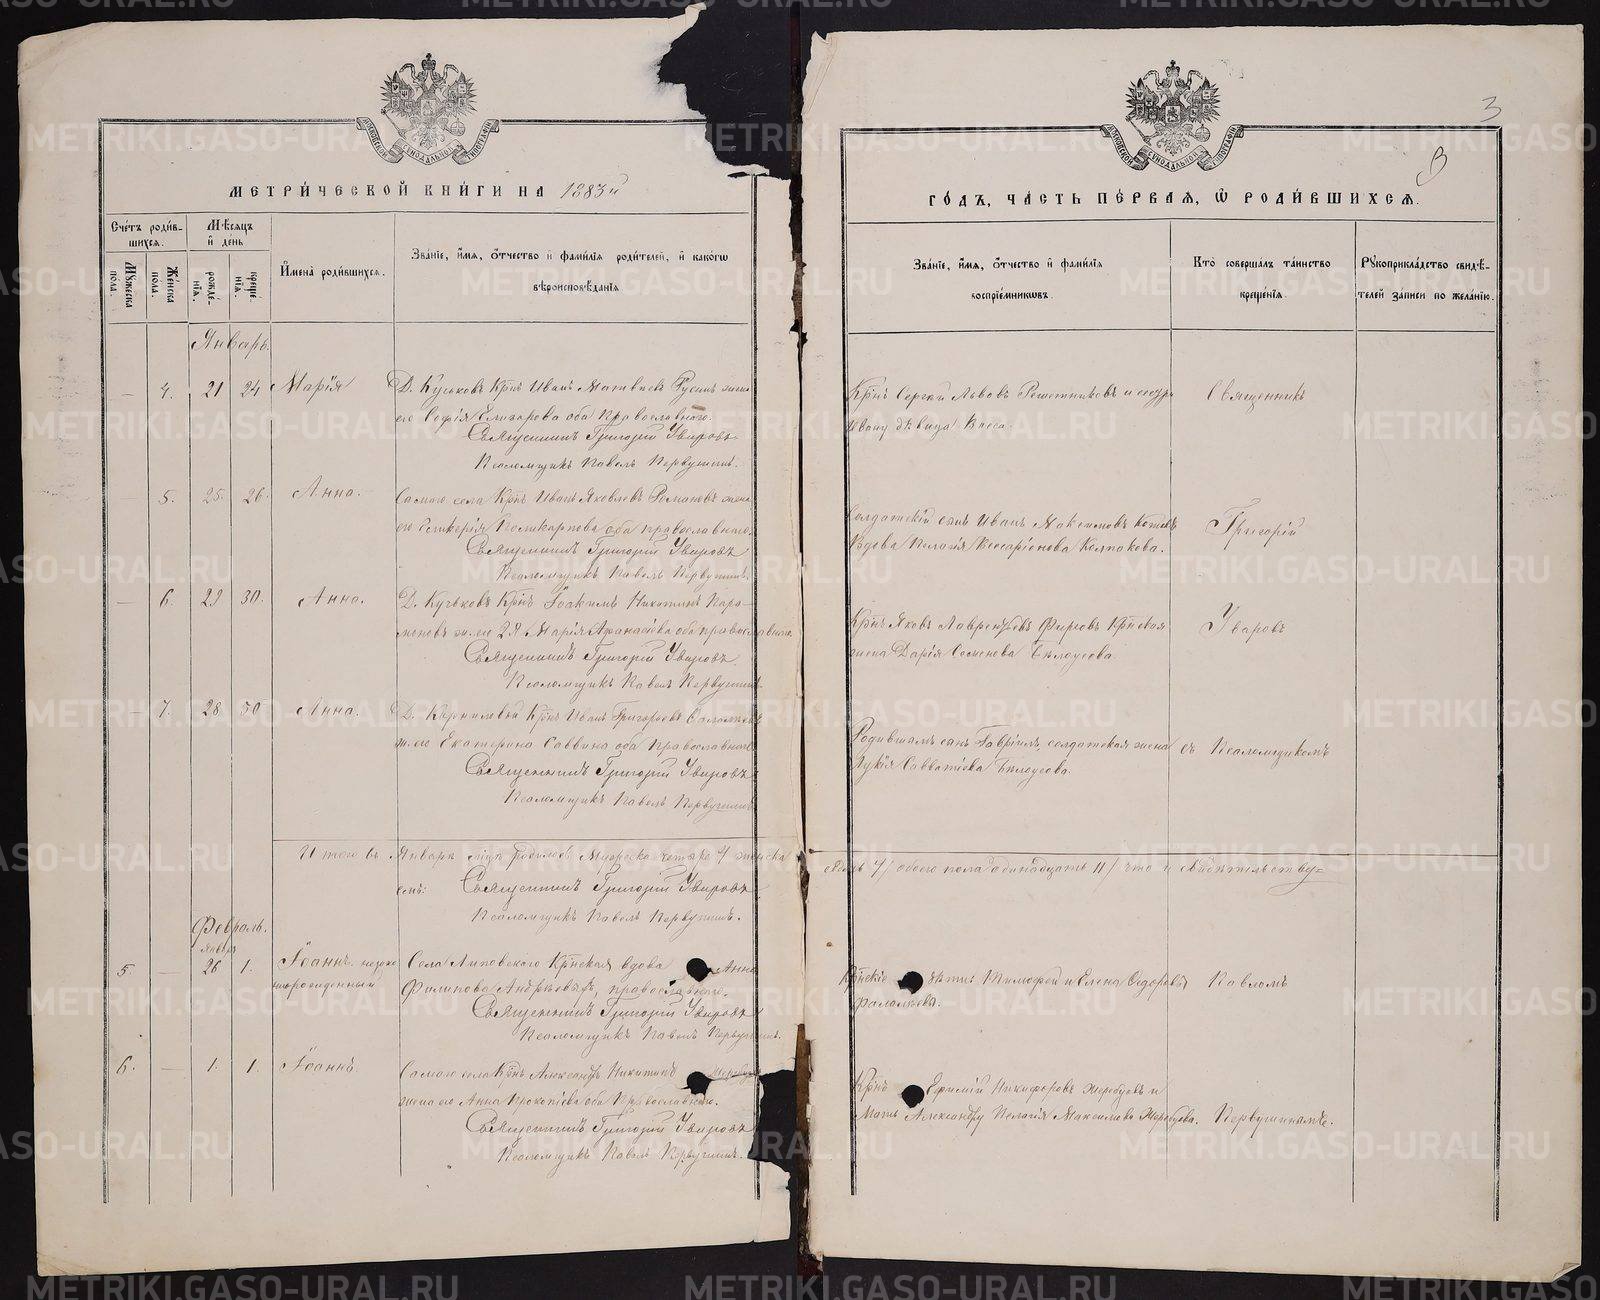 МЕТРИ́ЧЕСКОЙ КНИ́ГИ НА 1883й
Сче́тъ роди́вшихся.
Му́жеска по́ла.
Же́нска по́ла.
Мѣ́сяцъ и҆ день
рожде́нїя.
креще́нїя.
И҆мена̀ роди́вшихся.
Зва́нїе, и҆́мя, о҆́тчество и҆ фами́лїя роди́телей, и҆ како́гѡ
вѣроисповѣ́данїя
Январь.
4. 21 24 Марія Д. Куськовъ Крнъ Иванъ Матвиевъ Русинъ жена
его Софія Елизарова оба Православнаго.
Священникъ Григорій Уваровъ
Псаломщикъ Павелъ Первушинъ.
5. 25. 26. Анна. Самаго села Крнъ Иванъ Яковлевъ Романовъ жена
его Гликерія Поликарпова оба православнаго.
Священникъ Григорій Уваровъ
Псаломщикъ Павелъ Первушинъ.
6. 29 30. Анна. Д. Куськовъ Крнъ Іоакимъ Никитинъ Пара-
моновъ ж. его 2я Марія Афанасіева оба православнаго
Священникъ Григорій Уваровъ.
Псаломщикъ Павелъ Первушинъ.
7. 28 30 Анна. Д. Крнъ Иванъ Григорьевъ
ж. его Екатерина Саввина оба Православнаго
Священникъ Григорій Уваровъ
Псаломщикъ Павелъ Первушинъ
Итого въ Январѣ м-цѣ родилось Мужеска четыре 4/ женска
Священникъ Григорій Уваровъ
Псаломщикъ Павелъ Первушинъ.
Февраль.
Января
5. 26 1. Іоаннъ незаконнорожденный Села Липовскаго Крнская вдова Анна
Филипова Андрѣева, православнаго.
Священникъ Григорій Уваровъ
Псаломщикъ Павелъ Первушинъ.
6. 1. 1. Іоаннъ Самаго села Крнъ Александръ Никитинъ
жена его Анна Прокопіева оба Православнаго.
Священникъ Григорій Уваровъ
Псаломщикъ Павелъ Первушинъ.
3
3
ГО́ДЪ, ЧА́СТЬ ПЕ́РВАЯ, Ѡ҆ РОДИ́ВШИХСЯ.
Зва́нїе, и҆́мя, о҆́тчество и҆ фами́лїя
воспрїе́мникѡвъ.
Кто̀ соверша́лъ та́инство
креще́нїя.
Рꙋкоприкла́дство свидѣ́-
телей за́писи по жела́нїю.
Крнъ Сергій Львовъ Решетниковъ и
дѣвица Васса.
Священникъ
Солдатскій сынъ Иванъ Максимовъ
Вдова Пелагія Виссаріонова Колпакова.
Григорій
Крнъ Яковъ Лаврентьевъ Фирсовъ Крнская
жена Дарія Семенова Бѣлоусова.
Уваровъ
Родившимъ сынъ Гавріилъ, солдатская жена
Лукія Савватіева Бѣлоусова.
съ Псаломщикомъ
семь 7/ обоего пола одинадцать 11/ что и свидѣтельству-
Крнскіе дѣти Тимофей и Елена Ѳедоровы
Фалалѣева.
Павломъ
Крнъ Ефимій Никифоровъ Жеребцовъ и
Мать Александру Пелагія Максимова Жеребцова.
Первушинымъ.